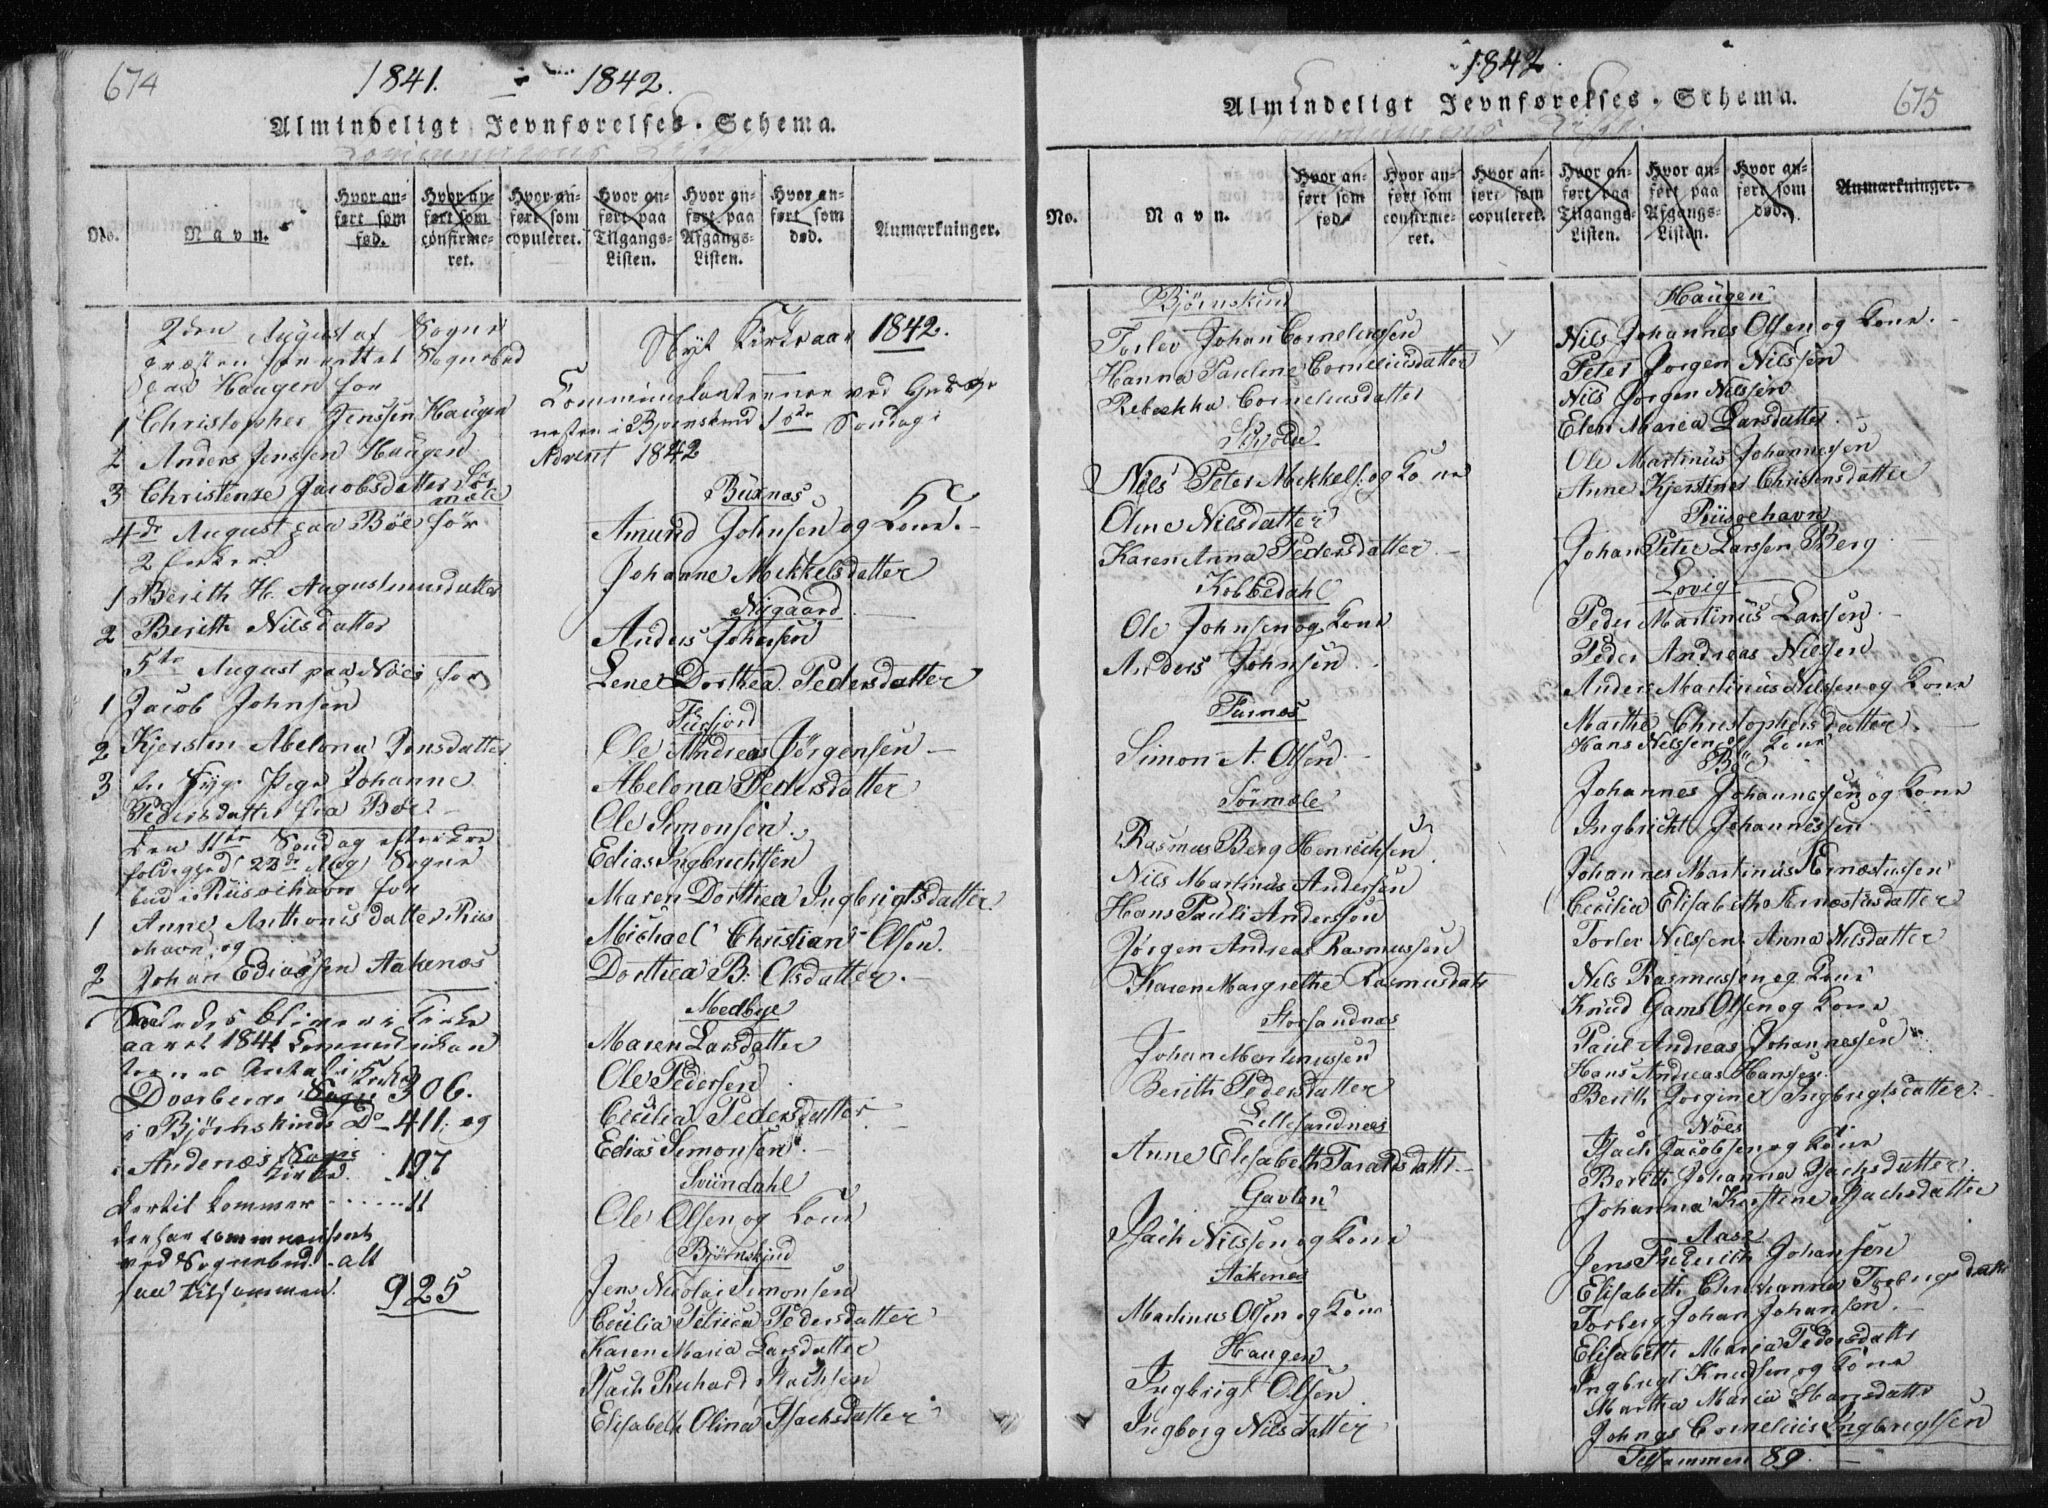 674
1841. - 1842.
Almindeligt Jevnførelses-Schema.
Communions Liste
No.
Navn.
Hvor anført som fød.
Hvor anført som confirmeret.
Hvor anført som copuleret.
Hvor anført paa Tilgangs-Listen.
Hvor anført paa Afgangs-Listen.
Hvor anført som død.
Anmærkninger.
2den August af Sogne
præsten forrettet Sognebud
paa Haugen for
1 Christopher Jenssen Haugen
2 Anders Jenssen Haugen
3 Christense Jacobsdatter Sør
mele
4de August paa Böe før
2 Enker
1 Berith H. Augustinusdatter
2 Berith Nilsdatter
5te August paa Nöes for
1 Jacob Johnsen
2 Kjersten Abelona Jensdatter
3 en Syg Pige Johanne
Pedersdatter fra Böe
den 11te Søndag efter Tre
foldighed 22de Aug Sogne
bud i Riisøehavn for
1 Anne Anthonisdatter Riis
øhavn og
2 Johan Ediassen Aakenæs
Saaledes bliver i Kirke
aaret 1841 Communikan
ternes Antal i
Dverberg Kirke 306.
i Bjørnskinds Do 411. og
i Andenæs Sogn
Kirke 197
Hertil kommer ...... 11
der har communiseret
ved Sognebud - alt
saa tilsammen 925
Nyt Kirkeaar 1842.
Communikanterne ved Gudstje
nesten i Bjørnskind 1ste Søndag i
Advent 1842
Buxnæs
Amund Johnsen og Kone.
Johanne Mikkelsdatter
Nygaard
Anders Johnsen
Lene Dorthea Pedersdatter
Fiisfjord
Ole Andreas Jørgensen
Abelona Pedersdatter
Ole Simonsen
Edias Ingbrichtsen
Maren Dorthea Ingbrigtsdatter
Michael Christian Olsen.
Dorthea B. Olsdatter.
Medbye
Maren Larsdatter
Ole Pedersen
Cecilia Pedersdatter
Edias Simonsen
Svündahl
Ole Olsen og Kone
Bjørnskind
Jens Nicolai Simonsen
Cecilia Petrica Pedersdatter
Karen Maria Larsdatter
Isach Richard Isachsen
Elisabeth Olina Isachsdatter
1842.
Almindeligt Jevnførelses-Schema.
675
Communions Liste.
No.
Navn.
Hvor anført som fød.
Hvor anført som confirmeret.
Hvor anført som copuleret.
Hvor anført paa Tilgangs-Listen.
Hvor anført paa Afgangs-Listen.
Hvor anført som død.
Anmærkninger.
Bjørnskind
Torlev Johan Corneliussen
Hanna Pauline Corneliusdatter
Rebekka Corneliusdatter
Skjolde
Nils Peter Mekkels: og Kone
Oline Nilsdatter
Karen Anna Pedersdatter
Kobbedahl
Ole Johnsen og Kone
Anders Johnsen
Furnes
Simon A. Olsen
Sörmele
Rasmus Berg Henrichsen
Nils Martinus Andersen
Hans Pauli Andersen
Jørgen Andreas Rasmussen
Karen Margrethe Rasmusdatr
Storsandnæs
Johan Martinussen
Berith Pedersdatter
Lillesandnæs
Anne Elisabeth Taraldsdattr
Gavlen
Isach Nilssen og Kone
Aakenes
Martinus Olsen og Kone
Haugen
Ingbrigt Olsen
Ingborg Nilsdatter
Haugen
Nils Johannes Olsen og Kone.
Peter Jørgen Nilssen
Nils Jørgen Nilssen
Elen Maria Larsdatter
Ole Martinus Johannessen
Anne Kjerstine Christensdatter
Riisøehavn
Johan Peter Larssen Berg
Lovig
Peder Martinus Larssen
Peder Andreas Nilssen
Anders Martinus Nilssen og Kone
Marthe Christophersdatter
Hans Nilssen og Kone
Böe
Johannes Johannessen og Kone
Ingbricht Johannessen
Johannes Martinus Ernestussen
Cecilia Elisabeth Ernestusdatter
Torler Nilssen Anna Nilsdatter
Nils Rasmussen og Kone
Knud Gams Olsen og Kone
Paul Andreas Johannessen
Hans Andreas Hanssen
Berith Jorgine Ingbrigtsdatter
Nöes
Isach Jacobsen og Kone
Berith Johanna Isachsdatter
Johanna Kirstine Isachsdatter
Aase
Jens Frederik Johansen
Elisabeth Christianna Torbergsdattr
Torberg Johan Johansen
Elisabeth Maria Pedersdattr
Ingbrigt Knudsen og Kone
Martha Maria Hansdattr
Johngs Cornelius Ingbrigtsen
Tilsammen 89.